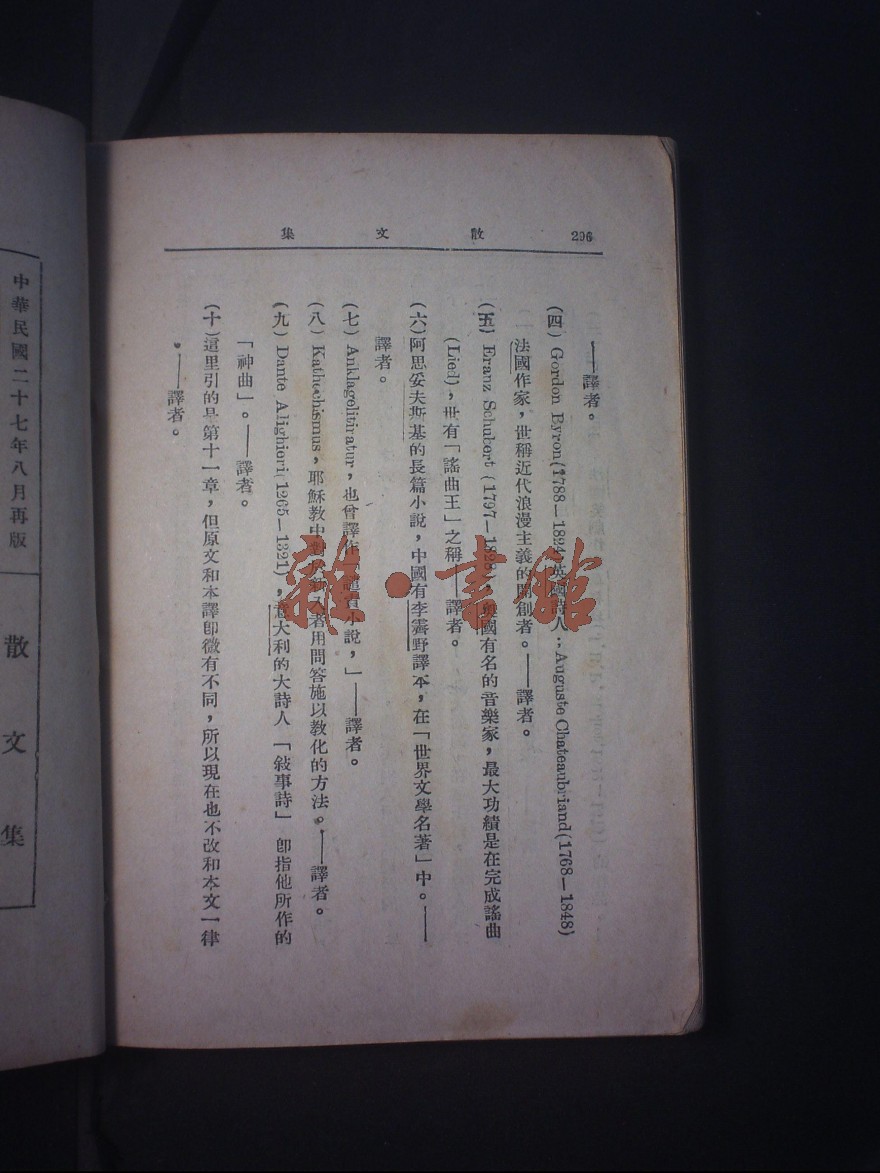 296
散文集
——譯者。
(四) Gordon Byron(1788—1824)英國詩人；Auguste Chateaubriand(1768—1848)
法國作家，世稱近代浪漫主義的開創者。——譯者。
(五) Eranz Schubert (1797—1828)奧國有名的音樂家，最大功績是在完成謠曲
(Lied)，世有「謠曲王」之稱——譯者。
(六)阿思妥夫斯基的長篇小說，中國有李霽野譯本，在「世界文學名著」中。——
譯者。
(七) Anklagelitiratur，也曾譯作「譴責小說，」——譯者。
(八) Kathechismus，耶穌教中對於新入者用問答施以教化的方法。——譯者。
(九) Dante Alighieri(1265—1321)，意大利的大詩人「敍事詩」卽指他所作的
「神曲」。——譯者。
(十)這里引的是第十一章，但原文和本譯卽微有不同，所以現在也不改和本文一律
。——譯者。
中華民國二十七年八月再版
散文集
雜·書館